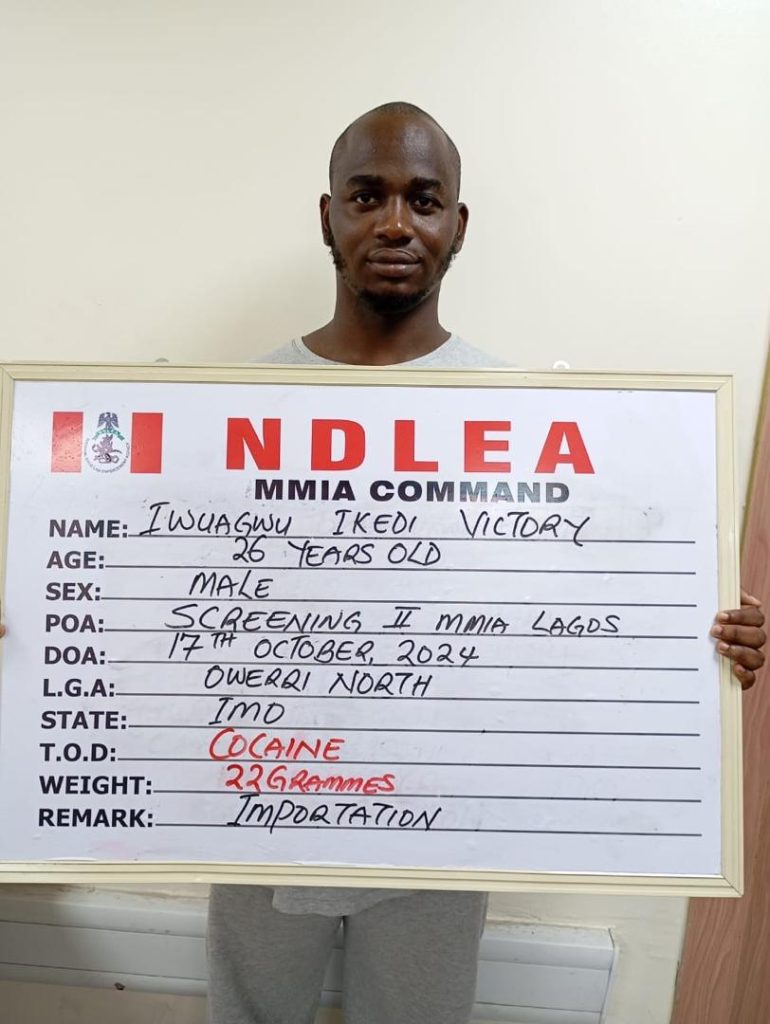 NDLEA
MMIA COMMAND
NAME: IWUAGWU IKEDI VICTORY
AGE: 26 YEARS OLD
SEX: MALE
POA: SCREENING II MMIA LAGOS
DOA: 17TH OCTOBER, 2024
L.G.A: OWERRI NORTH
STATE: IMO
T.O.D: COCAINE
WEIGHT: 22 GRAMMES
REMARK: IMPORTATION